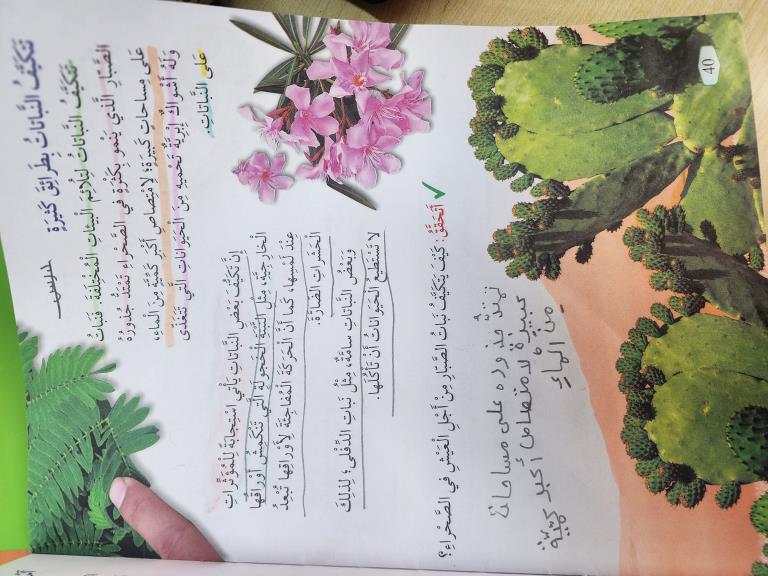 تَكَيُّفُ النَّباتاتِ بِطَرائِقَ كَثيرَةٍ
تَتَكَيَّفُ النَّباتاتُ لِتُلائِمَ الْبيئاتِ الْمُخْتَلِفَةَ. فَنَباتُ
الصَّبّارِ الَّذي يَنْمو بِكَثْرَةٍ في الصَّحْراءِ تَمْتَدُّ جُذورُهُ
عَلى مِساحاتٍ كَبيرَةٍ؛ لِامْتِصاصِ أَكْبَرِ كَمِّيَّةٍ مِنَ الْماءِ،
وَلَهُ أَشْواكٌ إِبْرِيَّةٌ تَحْميهِ مِنَ الْحَيَواناتِ الَّتي تَتَغَذّى
عَلى النَّباتاتِ.
إِنَّ تَكَيُّفَ بَعْضِ النَّباتاتِ يَأْتي اسْتِجابَةً لِلْمُؤَثِّراتِ
الْخارِجِيَّةِ، مِثْلُ النَّبْتَةِ الْخَجولَةِ الَّتي تَنْكَمِشُ أَوْراقُها
عِنْدَ لَمْسِها، كَما أَنَّ الْحَرَكَةَ الْمُفاجِئَةَ لِأَوْراقِها تُبْعِدُ
الْحَشَراتِ الضّارَّةَ.
وَبَعْضُ النَّباتاتِ سامَّةٌ، مِثْلُ نَباتِ الدِّفْلى؛ لِذلِكَ
لا تَسْتَطيعُ الْحَيَواناتُ أَنْ تَأْكُلَها.
أَتَحَقَّقُ: كَيْفَ يَتَكَيَّفُ نَباتُ الصَّبّارِ مِنْ أَجْلِ الْعَيْشِ في الصَّحْراءِ؟
تمتدّ جذوره على مساحات
كبيرة لامتصاص أكبر كميّة
من الماءِ
40